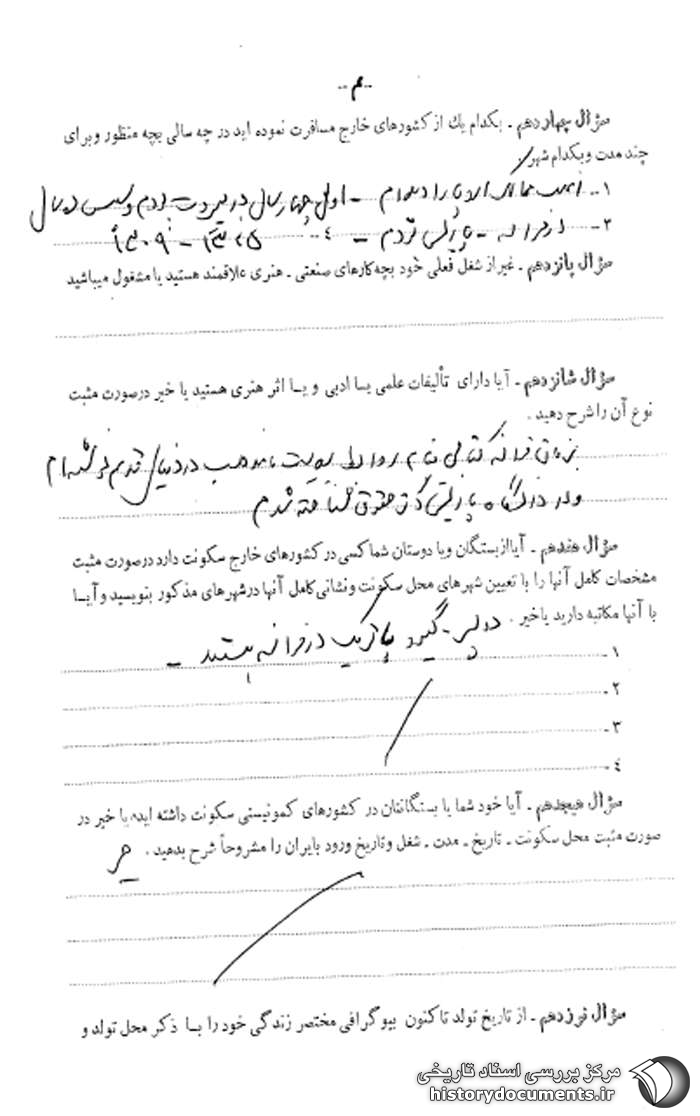 -۴-
سؤال چهاردهم - بکدام یك از کشورهای خارج مسافرت نموده اید در چه سالی بچه منظور وبرای
چند مدت و بکدام شهر
۱- اغلب ممالک اروپا را دیده‌ام - اول چهار سال در بیروت بودم و سپس سال
۲- در فرانسه - پاریس بودم - ۴-
سؤال پانزدهم - غیر از شغل فعلی خود بچه کارهای صنعتی - هنری علاقمند هستید یا مشغول میباشید
سؤال شانزدهم - آیا دارای تألیفات علمی یـا ادبی و یـا اثر هنری هستید یا خیر درصورت مثبت
نوع آن را شرح دهید .
بزبان فرانسه کتابی بنام روابط و مذهب در قدیم نوشته‌ام
و در دانشگاه پاریس حقوق شدم
سؤال هفدهم - آیا از بستگان ویا دوستان شما کسی در کشورهای خارج سکونت دارد درصورت مثبت
مشخصات کامل آنها را با تعیین شهرهای محل سکونت ونشانی کامل آنها در شهرهای مذکور بنویسید و آیـا
با آنها مکاتبه دارید یاخیر .
۱- دو پسر - پاتریک در فرانسه هستند -
۲-
۳-
۴-
سؤال هیجدهم - آیا خود شما یا بستگانتان در کشورهای کمونیستی سکونت داشته اید یا خیر در
صورت مثبت محل سکونت - تاریخ - مدت - شغل وتاریخ ورود بایران را مشروحاً شرح بدهید . خیر
سؤال نوزدهم - از تاریخ تولد تاکنون بیوگرافی مختصر زندگی خود را بـا ذکر محل تولد و
مرکز بررسی اسناد تاریخی
historydocuments.ir